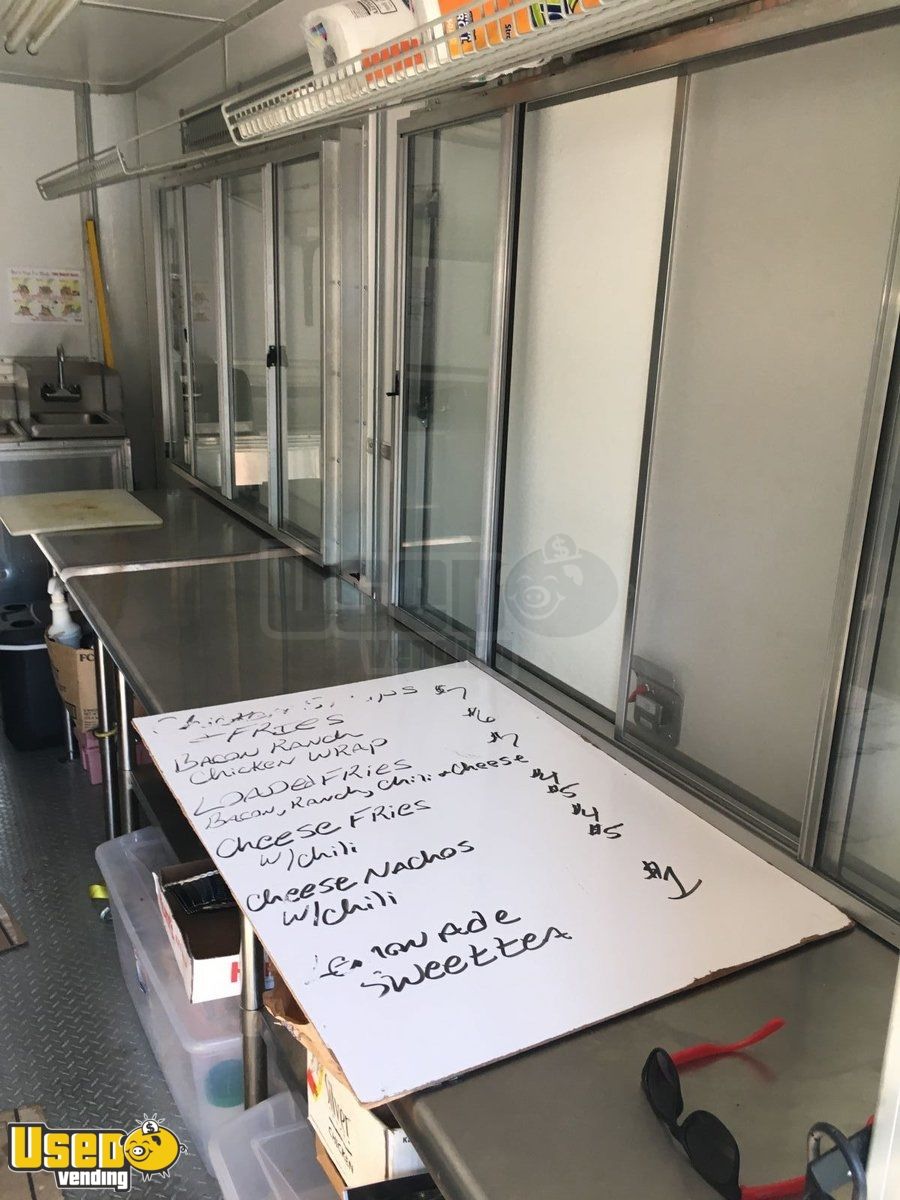 $7
+ FRIES
BACON RANCH $6
Chicken WRAP
LOADED FRIES $7
BACON, RANCH, Chili + Cheese
Cheese FRies $4
w/chili $5
Cheese NAchos $4
w/chili $5
Lemon Ade $1
Sweet teA
USED
vending
CHICKEN